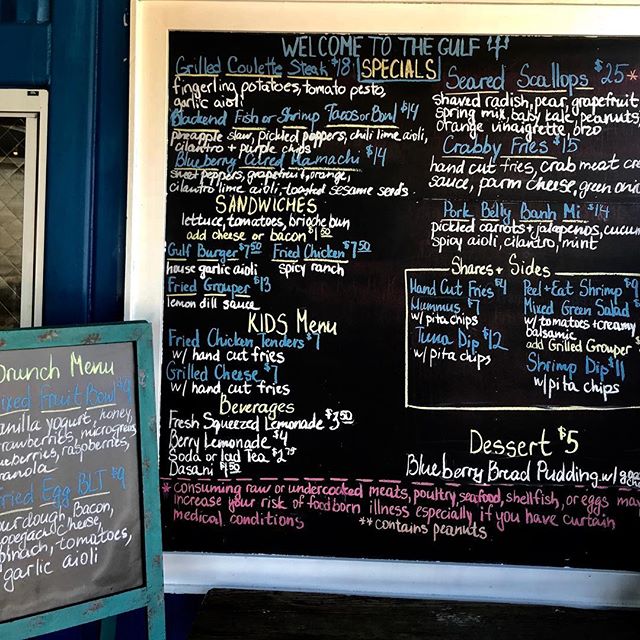 WELCOME TO THE GULF
SPECIALS
Grilled Coulette Steak $18
fingerling potatoes, tomato pesto,
garlic aioli
Blackend Fish or Shrimp Tacos or Bowl $14
pineapple slaw, pickled peppers, chili lime aioli,
cilantro + purple chips
Blueberry Cured Hamachi $14
sweet peppers, grapefruit, orange,
cilantro lime aioli, toasted sesame seeds
SANDWICHES
lettuce, tomatoes, brioche bun
add cheese or bacon $1.50
Gulf Burger $7.50 Fried Chicken $7.50
house garlic aioli spicy ranch
Fried Grouper $13
lemon dill sauce
KIDS Menu
Fried Chicken Tenders $7
w/ hand cut fries
Grilled Cheese $7
w/ hand cut fries
Beverages
Fresh Squeezed Lemonade $3.50
Berry Lemonade $4
Soda or Iced Tea $2.75
Dasani $1.50
Seared Scallops $25*
shaved radish, pear, grapefruit
spring mix, baby kale, peanuts,
orange vinaigrette, orzo
Crabby Fries $15
hand cut fries, crab meat
sauce, parm cheese, green
Pork Belly Banh Mi $14
pickled carrots + jalapenos,
spicy aioli, cilantro, mint
Shares + Sides
Hand Cut Fries $4
Hummus $7
w/ pita chips
Tuna Dip $12
w/ pita chips
Peel + Eat Shrimp $9
Mixed Green Salad
w/ tomatoes + creamy
balsamic
add Grilled Grouper $
Shrimp Dip $11
w/ pita chips
Dessert $5
Blueberry Bread Pudding w/
* consuming raw or undercooked meats, poultry, seafood, shellfish, or eggs may
increase your risk of foodborn illness especially if you have curtain
medical conditions
** contains peanuts
Brunch Menu
Mixed Fruit Bowl
vanilla yogurt, honey,
strawberries, microgreens
blueberries, raspberries,
granola
Fried Egg BLT $9
sourdough, Bacon,
cheese,
spinach, tomatoes,
garlic aioli